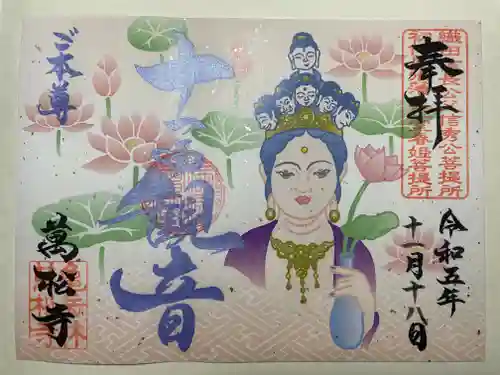 織田信長公父信秀公菩提所
春姫菩提所
奉拝
令和五年
十一月十八日
ご本尊
十一面観音
萬松寺